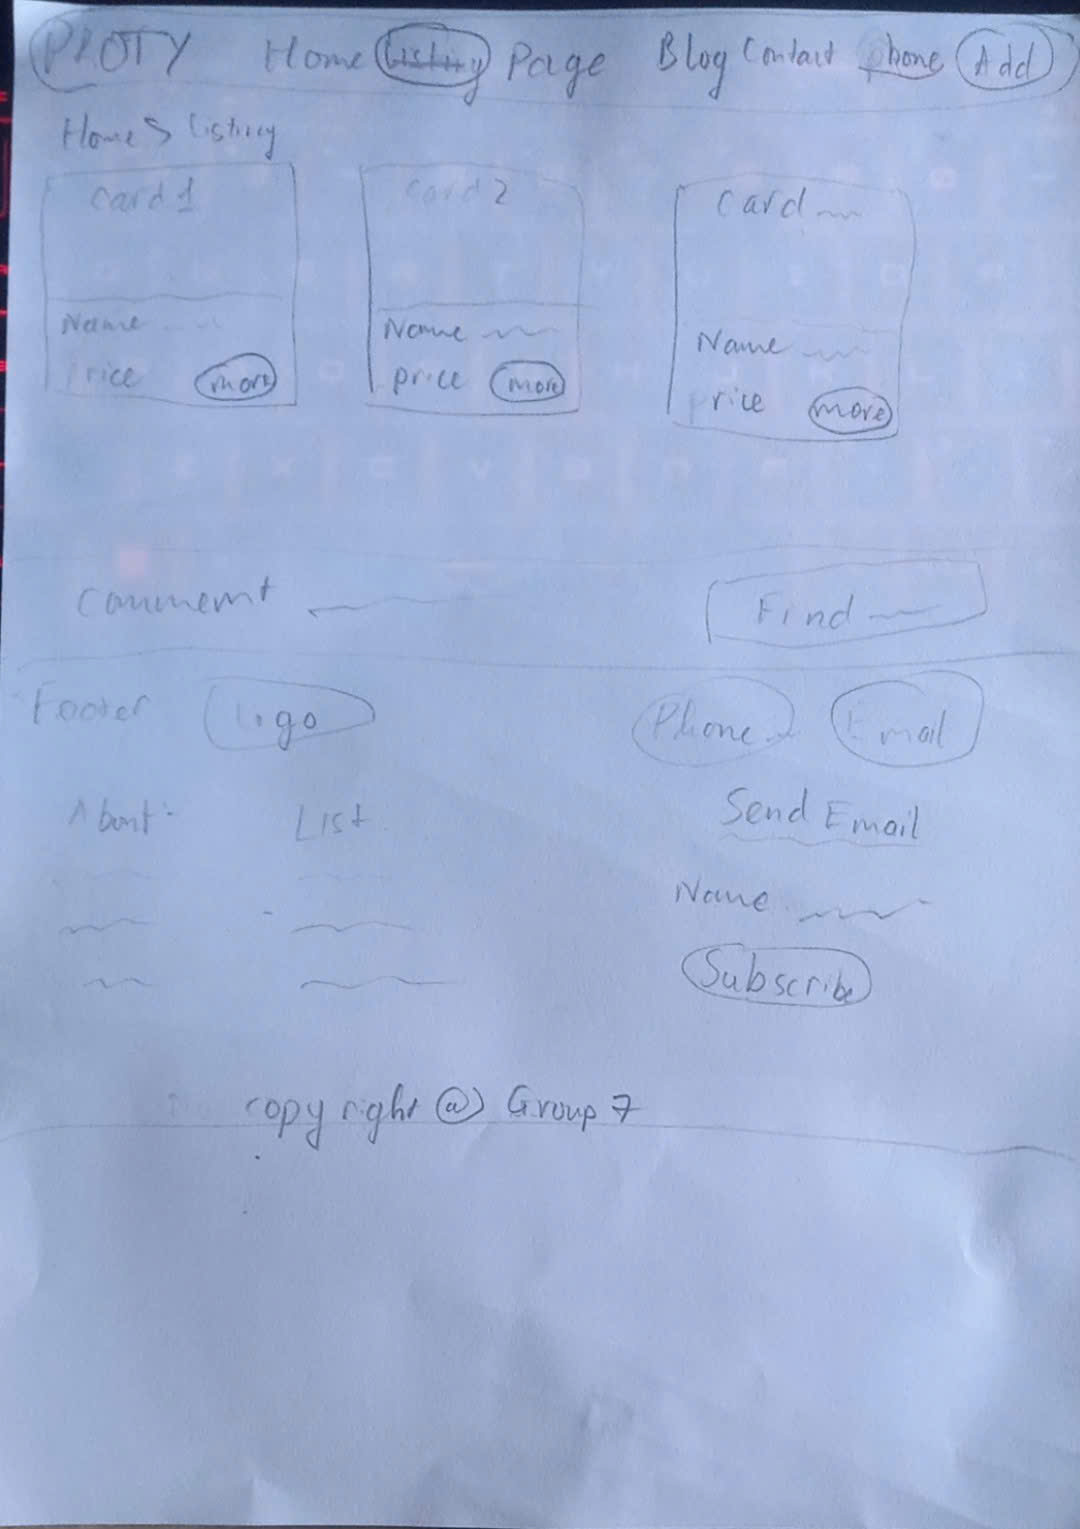 PROTY Home Listing Page Blog Contact phone Add
Home > listing
Card 1 Card 2 Card
Name Name Name
Price price price
more more more
Comment Find
Footer Logo Phone Email
About List Send Email
Name
Subscribe
copy right @ Group 7